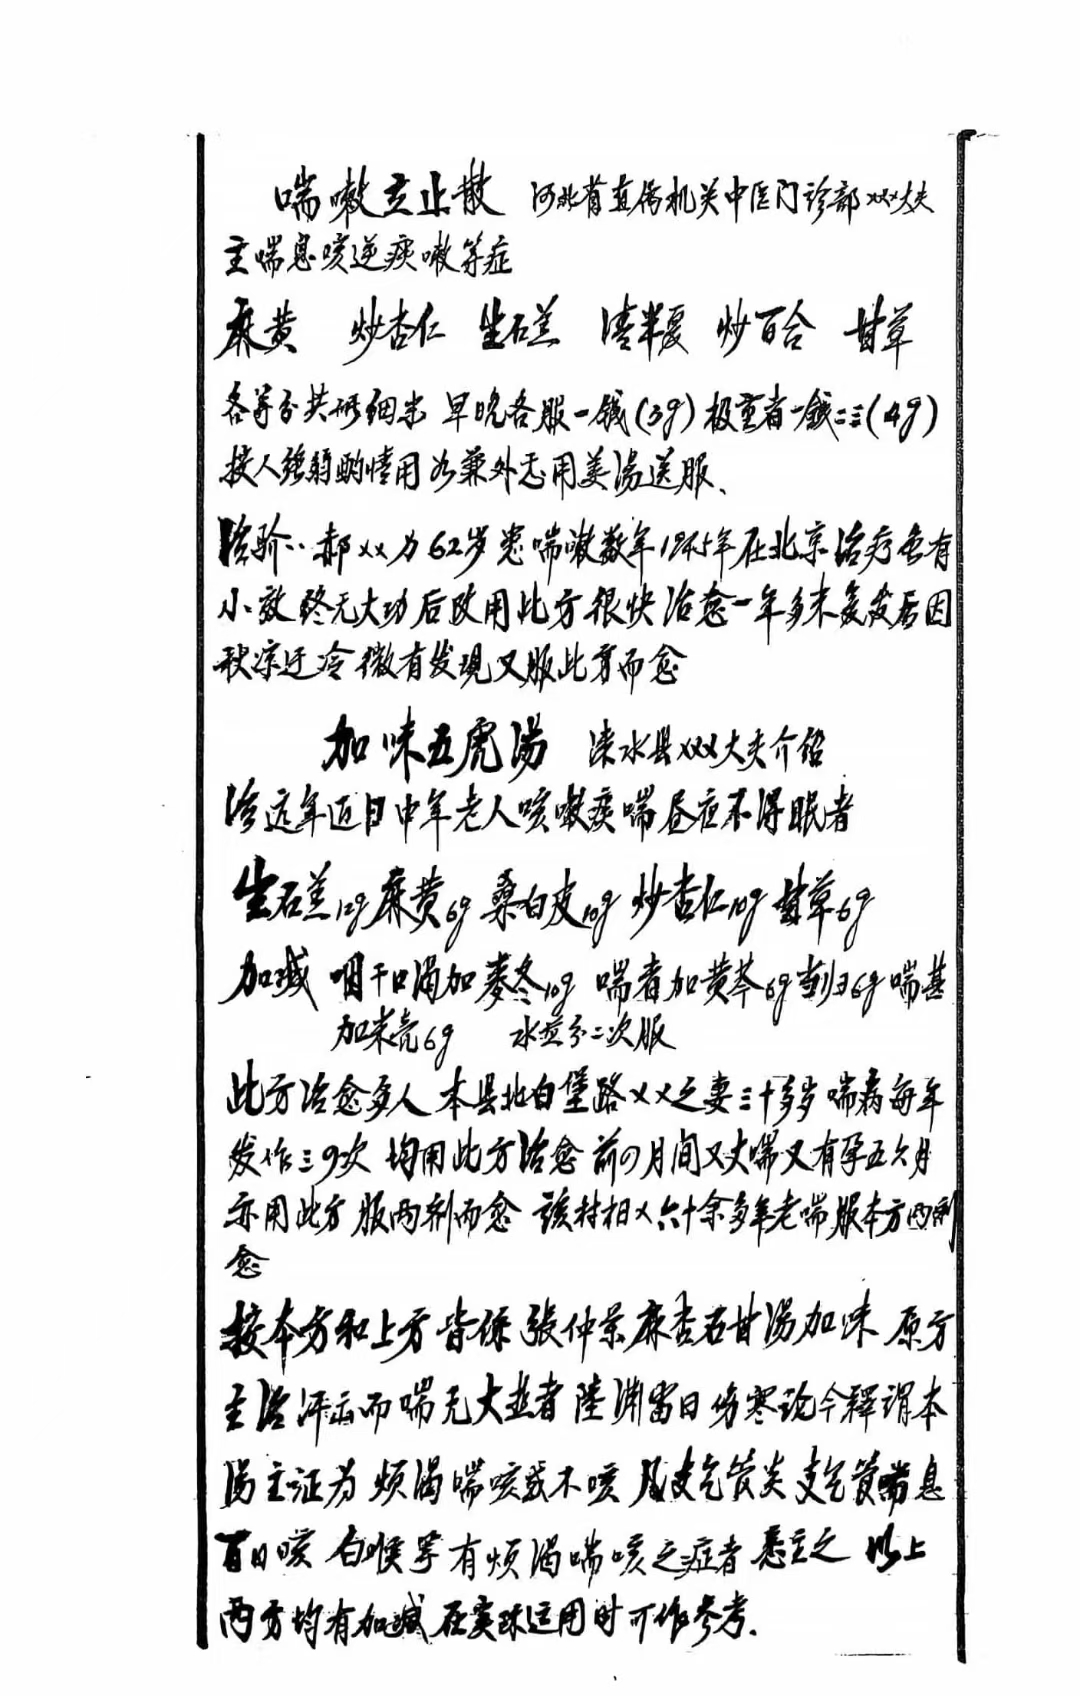 喘嗽立止散 河北省直属机关中医门诊部xxx大夫
主喘息咳逆痰嗽等症
麻黄 炒杏仁 生石羔 清半夏 炒百合 甘草
各等分共研细末 早晚各服一钱(3g)极重者一钱二三(4g)
按人强弱酌情用 如兼外感用姜汤送服、
治验:郝xx 为62岁患喘嗽数年 年在北京治疗 有
小效终无大功后改用此方很快治愈一年多未复发后因
秋凉迂冷微有发现又服此方而愈
加味五虎汤 涞水县xxx大夫介绍
治远年近日中年老人咳嗽痰喘昼夜不得眠者
生石羔12g麻黄6g桑白皮10g炒杏仁10g甘草6g
加减 咽干口渴加麦冬10g 喘者加黄芩6g当归6g喘甚
加米壳6g 水煎分二次服
此方治愈多人 本县北白堡路xx之妻三十多岁喘病每年
发作三四次 均用此方治愈 前四月间又大喘又有孕五六月
亦用此方服两剂而愈 该村相x六十余多年老喘服本方两剂
愈
按本方和上方皆係张仲景麻杏石甘汤加味 原方
主治汗出而喘无大热者 陆渊雷曰伤寒论今释谓本
汤主证为烦渴喘咳或不咳 凡支气管炎支气管喘息
百日咳 白喉等有烦渴喘咳之症者悉主之 以上
两方均有加减在实际运用时可作参考.